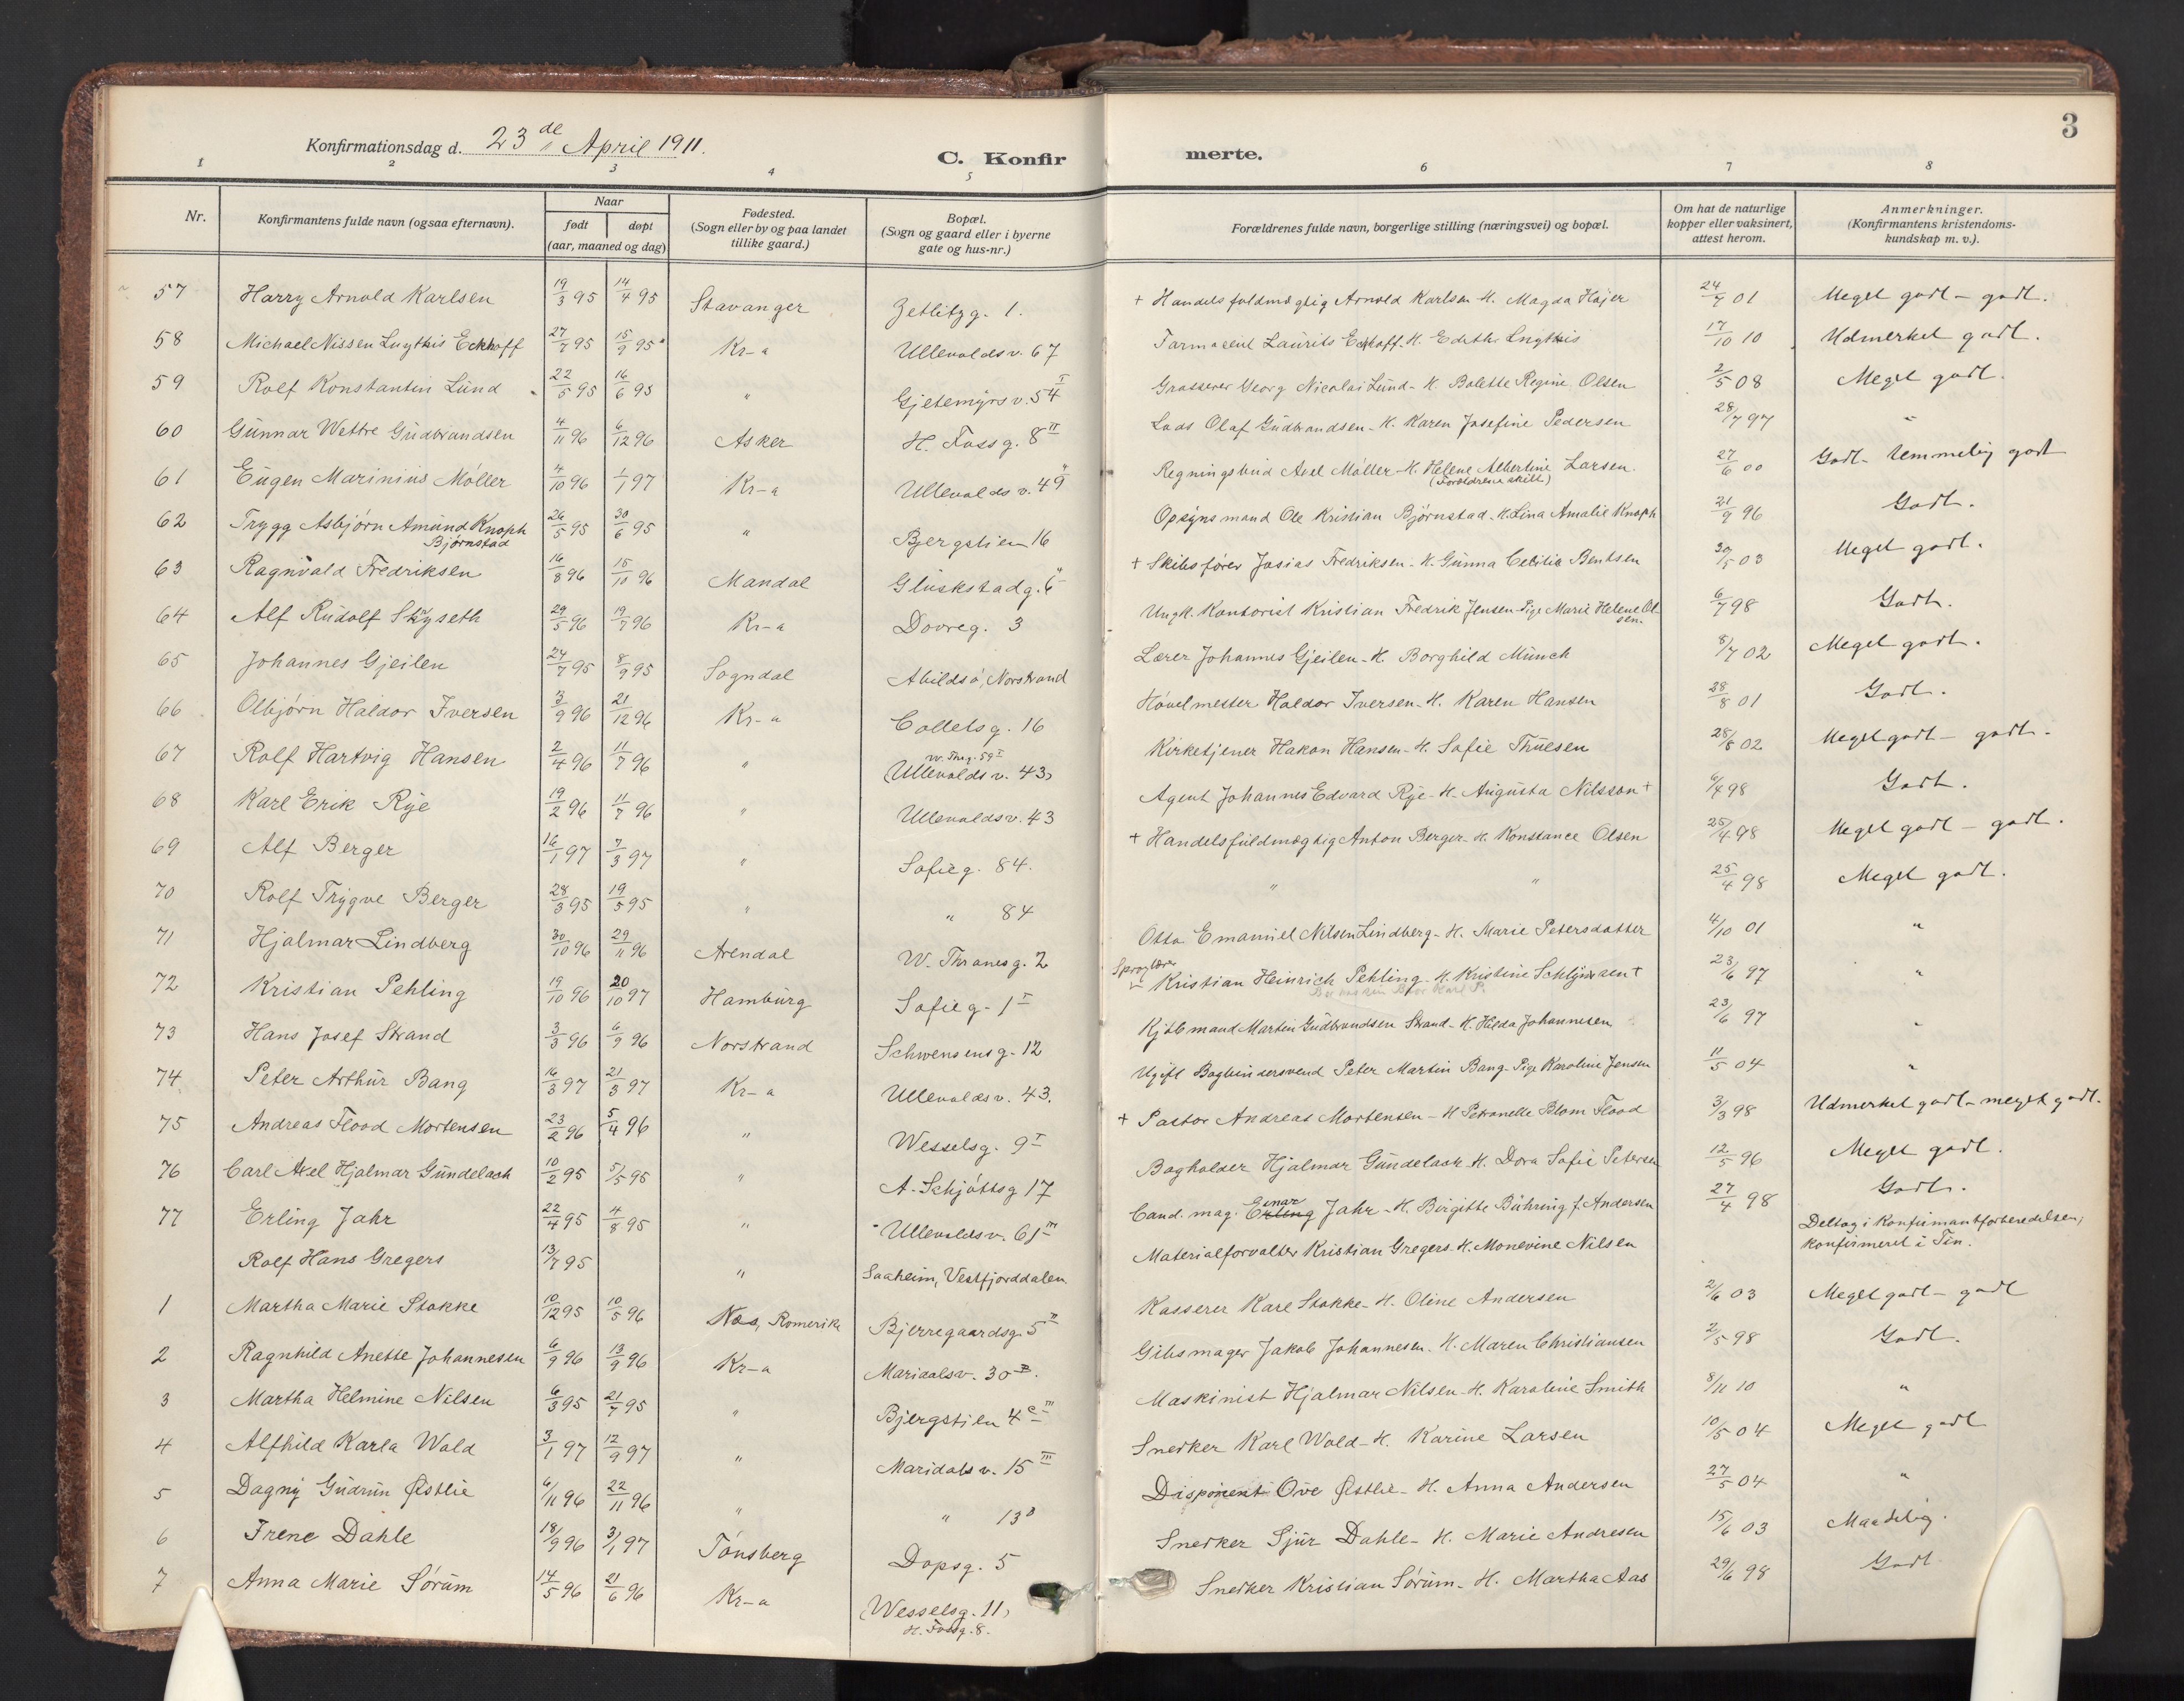 3
Konfirmationsdag d. 23de April 1911.
C. Konfirmerte.
1 2 3 4 5 6 7 8
Nr. | Konfirmantens fulde navn (ogsaa efternavn). | Naar født døpt (aar, maaned og dag) | Fødested. (Sogn eller by og paa landet tillike gaard.) | Bopæl. (Sogn og gaard eller i byerne gate og hus-nr.) | Forældrenes fulde navn, borgerlige stilling (næringsvei) og bopæl. | Om hat de naturlige kopper eller vaksinert, attest herom. | Anmerkninger. (Konfirmantens kristendomskundskap m. v.).
57 Harry Arnold Karlsen 19/3 95 14/4 95 Stavanger Zetlitzg. 1. + Handelsfuldmægtig Arnold Karlsen - H. Magda Højer 24/7 01 Meget godt - godt.
58 Michael Nissen Lngthis Eckhoff 27/7 95 15/9 95 Kr-a Ullevoldsv. 67 Farmaceut Laurits Eckhoff - H. Edith Lngthis 17/10 10 Udmerket godt.
59 Rolf Konstantin Lund 22/5 95 16/6 95 " Gjetemyrsv. 54 I Grosserer Georg Nicolai Lund - H. Bolette Regine Olsen 2/5 08 Meget godt.
60 Gunnar Wettre Gudbrandsen 4/11 96 6/12 96 Asker H. Fossg. 8 II Lods Olaf Gudbrandsen - H. Karen Josefine Pedersen 28/7 97 "
61 Eugen Marinius Møller 4/10 96 1/1 97 Kr-a Ullevoldsv. 49 II Regningsbud Axel Møller - H. Helene Albertine Larsen. (Forældrene skilt) 27/6 00 Godt - temmelig godt
62 Trygg Asbjørn Amund Knoph Bjørnstad 26/5 95 30/6 95 " Bjergstien 16 Opsynsmand Ole Kristian Bjørnstad - H. Lina Amalie Knoph 21/9 96 Godt.
63 Ragnvald Fredriksen 16/8 96 15/10 96 Mandal Glückstadg. 6 II + Skibsfører Josias Fredriksen - H. Gunna Cecilia Bentsen 30/5 03 Meget godt.
64 Alf Rudolf Skyseth 29/5 96 19/7 96 Kr-a Dovreg. 3 Ungk. Kontorist Kristian Fredrik Jensen - Pige Marie Helene Olsen. 6/7 98 Godt.
65 Johannes Gjeilen 24/7 95 8/9 95 Sogndal Abildsø, Norstrand Lærer Johannes Gjeilen - H. Borghild Münch 8/7 02 Meget godt.
66 Olbjørn Haldor Iversen 3/9 96 21/12 96 Kr-a Colletsg. 16 Høvelmester Haldor Iversen - H. Karen Hansen 28/8 01 Godt.
67 Rolf Hartvig Hansen 2/4 96 11/7 96 " W. Thrg. 59 I (Ullevoldsv. 43) Kirketjener Hakon Hansen - H. Sofie Thuesen 28/8 02 Meget godt - godt.
68 Karl Erik Rye 19/2 96 11/7 96 " Ullevoldsv. 43 Agent Johannes Edvard Rye - H. Augusta Nilsson + 6/4 98 Godt.
69 Alf Berger 16/1 97 7/3 97 " Sofieg. 84. + Handelsfuldmægtig Anton Berger - H. Konstance Olsen 25/4 98 Meget godt - godt.
70 Rolf Trygve Berger 28/3 95 19/5 95 " " 84 " " 25/4 98 Meget godt.
71 Hjalmar Lindberg 30/10 96 29/11 96 Arendal W. Thranesg. 2 Otto Emanuel Nilsen Lindberg - H. Marie Petersdatter 4/10 01 "
72 Kristian Pehling 19/10 96 20/10 97 Hamburg Sofieg. 1 I Sproglærer Kristian Heinrich Pehling - H. Kristine +  23/6 97 "
73 Hans Josef Strand 3/3 96 6/9 96 Norstrand Schwensensg. 12 Kjøbmand Martin Gudbrandsen Strand - H. Hilda Johannesen 23/6 97 "
74 Peter Arthur Bang 16/3 97 21/3 97 Kr-a Ullevoldsv. 43. Ugift Bogbindersvend Peter Martin Bang - Pige Karoline Jensen 11/5 04 "
75 Andreas Flood Mortensen 23/2 96 5/4 96 " Wesselsg. 9 I + Pastor Andreas Mortensen - H. Petronelle Blom Flood 3/3 98 Udmerket godt - meget godt.
76 Carl Axel Hjalmar Gundelach 10/2 95 5/5 95 " A. Schjøttsg 17 Bogholder Hjalmar Gundelach - H. Dora Sofie Petersen 12/5 96 Meget godt.
77 Erling Jahr 22/4 95 4/8 95 " Ullevoldsv. 61 III Cand. mag. Erling Einar Jahr - H. Birgitte Bühring f. Andersen 27/4 98 Godt.
Rolf Hans Gregers 13/7 95 " Saaheim, Vestfjorddalen Materialforvalter Kristian Gregers - H. Monevine Nilsen Deltog i Konfirmantforberedelsen, konfirmeret i Tin.
1 Martha Marie Stokke 10/12 95 10/5 96 Næs, Romerike Bjerregaardsg. 5 II Kasserer Kare Stokke - H. Oline Andersen 2/6 03 Meget godt - godt
2 Ragnhild Anette Johannesen 6/9 96 13/9 96 Kr-a Maridalsv. 30 Gibsmager Jakob Johannesen - H. Maren Christiansen 2/5 98 Godt.
3 Martha Helmine Nilsen 6/3 95 21/7 95 " Bjergstien 4 c III Maskinist Hjalmar Nilsen - H. Karoline Smith 8/11 10 "
4 Alfhild Karla Wold 3/1 97 12/9 97 " Maridalsv. 15 III Snedker Karl Wold - H. Karine Larsen 10/5 04 Meget godt
5 Dagny Gudrun Østlie 6/11 96 22/11 96 " " 13 b Disponent Ove Østlie - H. Anna Andersen 27/5 04 "
6 Irene Dahle 18/9 96 3/1 97 Tønsberg Dopsg. 5 Snedker Sjur Dahle - H. Marie Andresen 15/6 03 Maadelig.
7 Anna Marie Sørum 14/5 96 21/6 96 Kr-a (Wesselsg. 11) H. Fossg. 8. Snedker Kristian Sørum - H. Martha Aas 29/6 98 Godt